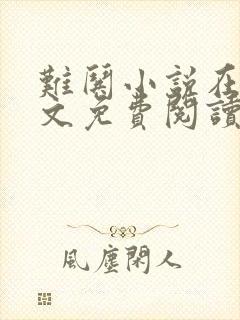 難關小說在
文免費閱讀
風塵閑人